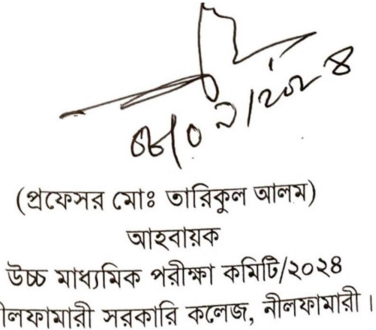 (প্রফেসর মোঃ তারিকুল আলম)
আহবায়ক
উচ্চ মাধ্যমিক পরীক্ষা কমিটি/২০২৪
নীলফামারী সরকারি কলেজ, নীলফামারী।